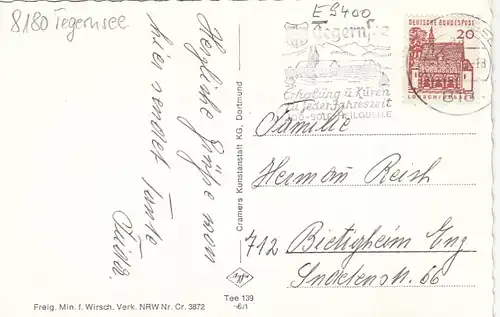 8180 Tegernsee
E 9400
Herzliche Grüße von
hier sendet Tante
Frieda.
Cramers Kunstanstalt KG, Dortmund
Agfa
Tee 139
Freig. Min. f. Wirsch. Verk. NRW Nr. Cr. 3872
Tegernsee
Erholung u Kuren
zu jeder Jahreszeit
JOD-SOLE HEILQUELLE
DEUTSCHE BUNDESPOST
20
LORSCH/HESSEN
Familie
Herman Reich
712 Bietigheim Enz
66